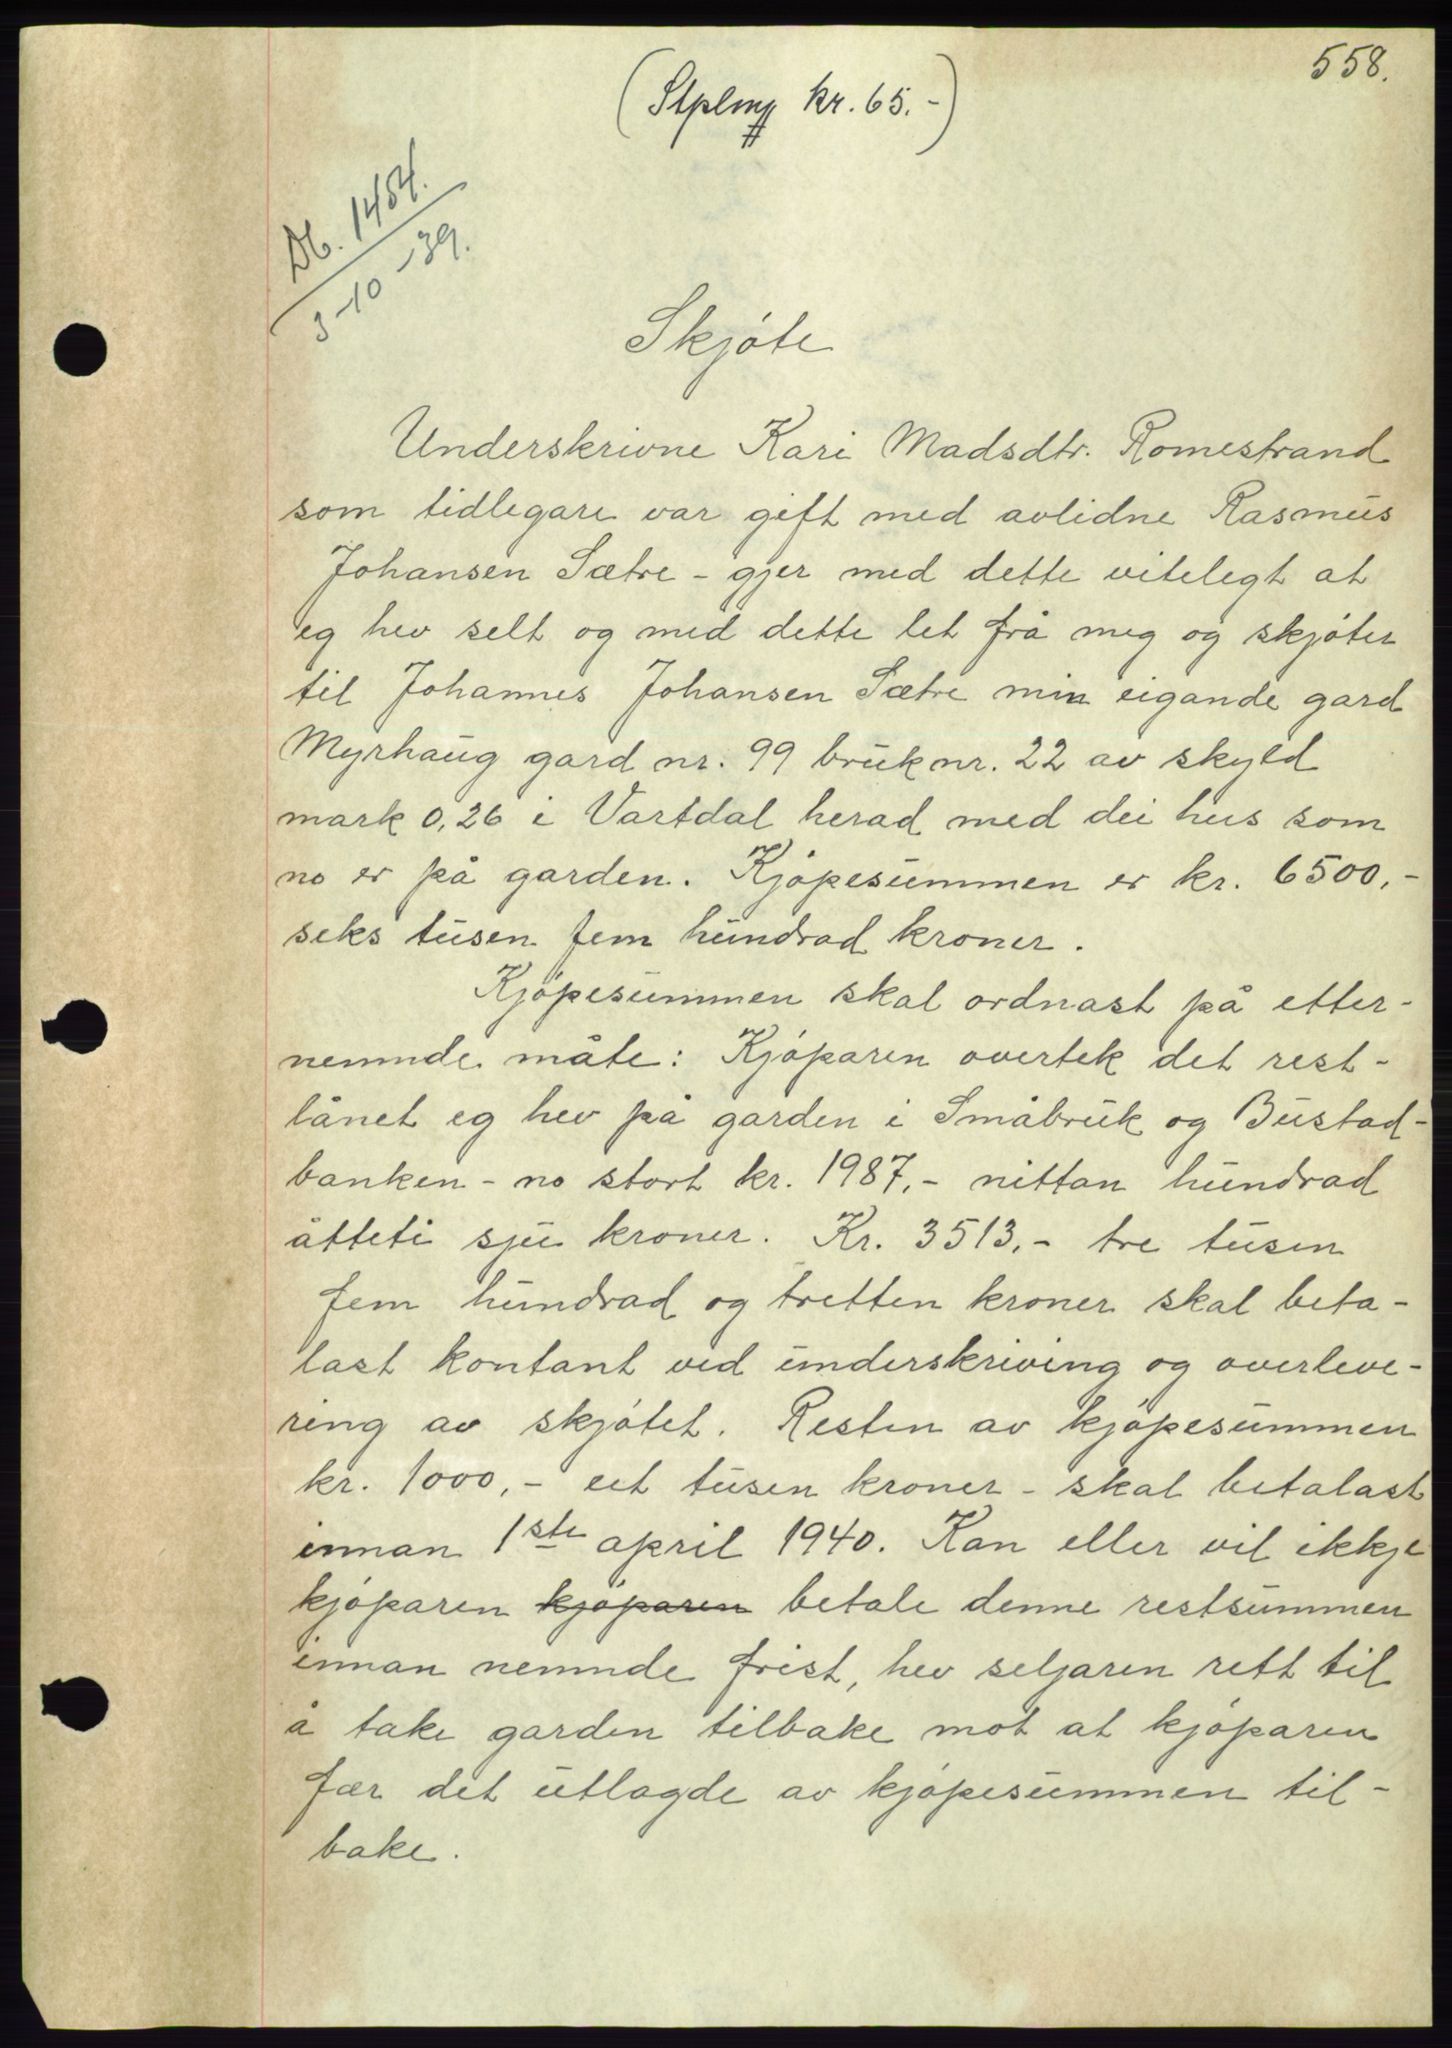 558.
(Stplmg kr. 65.-)
Db. 1454.
3-10-39.
Skjøte
Underskrivne Kari Madsdtr. Romestrand
som tidlegare var gift med avlidne Rasmus
Johansen Sætre - gjer med dette vitelegt at
eg hev selt og med dette let frå meg og skjøter
til Johannes Johansen Sætre min eigande gard
Myrhaug gard nr. 99 bruk nr. 22 av skyld
mark 0,26 i Vartdal herad med dei hus som
no er på garden. Kjøpesummen er kr. 6500,-
seks tusen fem hundrad kroner.
Kjøpesummen skal ordnast på etter-
nemnde måte: Kjøparen overtek det rest-
lånet eg hev på garden i Småbruk og Bustad-
banken - no stort kr. 1987,- nittan hundrad
åtteti sju kroner. Kr. 3513,- tre tusen
fem hundrad og tretten kroner skal beta-
last kontant ved underskriving og overleve-
ring av skjøtet. Resten av kjøpesummen
kr. 1000,- eet tusen kroner - skal betalast
innan 1ste april 1940. Kan eller vil ikkje
kjøparen kjøparen betale denne restsummen
innan nemnde frist, hev seljaren rett til
å take garden tilbake mot at kjøparen
fær det utlagde av kjøpesummen til-
bake.